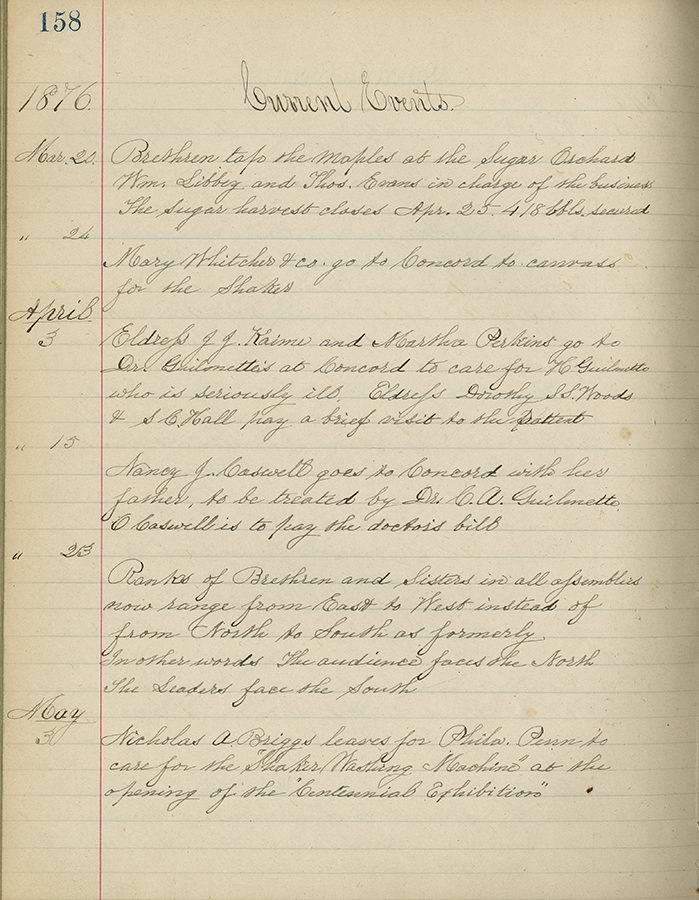 158
1876. Current Events.
Mar. 20. Brethren tap the Maples at the Sugar Orchard
Wm. Libbey and Thos. Evans in charge of the business
The sugar harvest closes Apr. 25. 418 bbls. secured
" 24
Mary Whitcher & co. go to Concord to canvass
for the Shaker
April
3 Eldress J. J. Kaime and Martha Perkins go to
Dr. Guilmette's at Concord to care for H Guilmette
who is seriously ill. Eldress Dorothy, I.S. Woods
& S C. Hall pay a brief visit to the patient
" 15
Nancy J. Caswell goes to Concord with her
father, to be treated by Dr. C. A. Guilmette.
O Caswell is to pay the doctor's bill
" 23
Ranks of Brethren and Sisters in all assemblies
now range from East to West instead of
from North to South as formerly.
In other words The audience faces the North
The Leaders face the South
May
3 Nicholas A Briggs leaves for Phila. Penn to
care for the "Shaker Washing Machine" at the
opening of the "Centennial Exhibition"